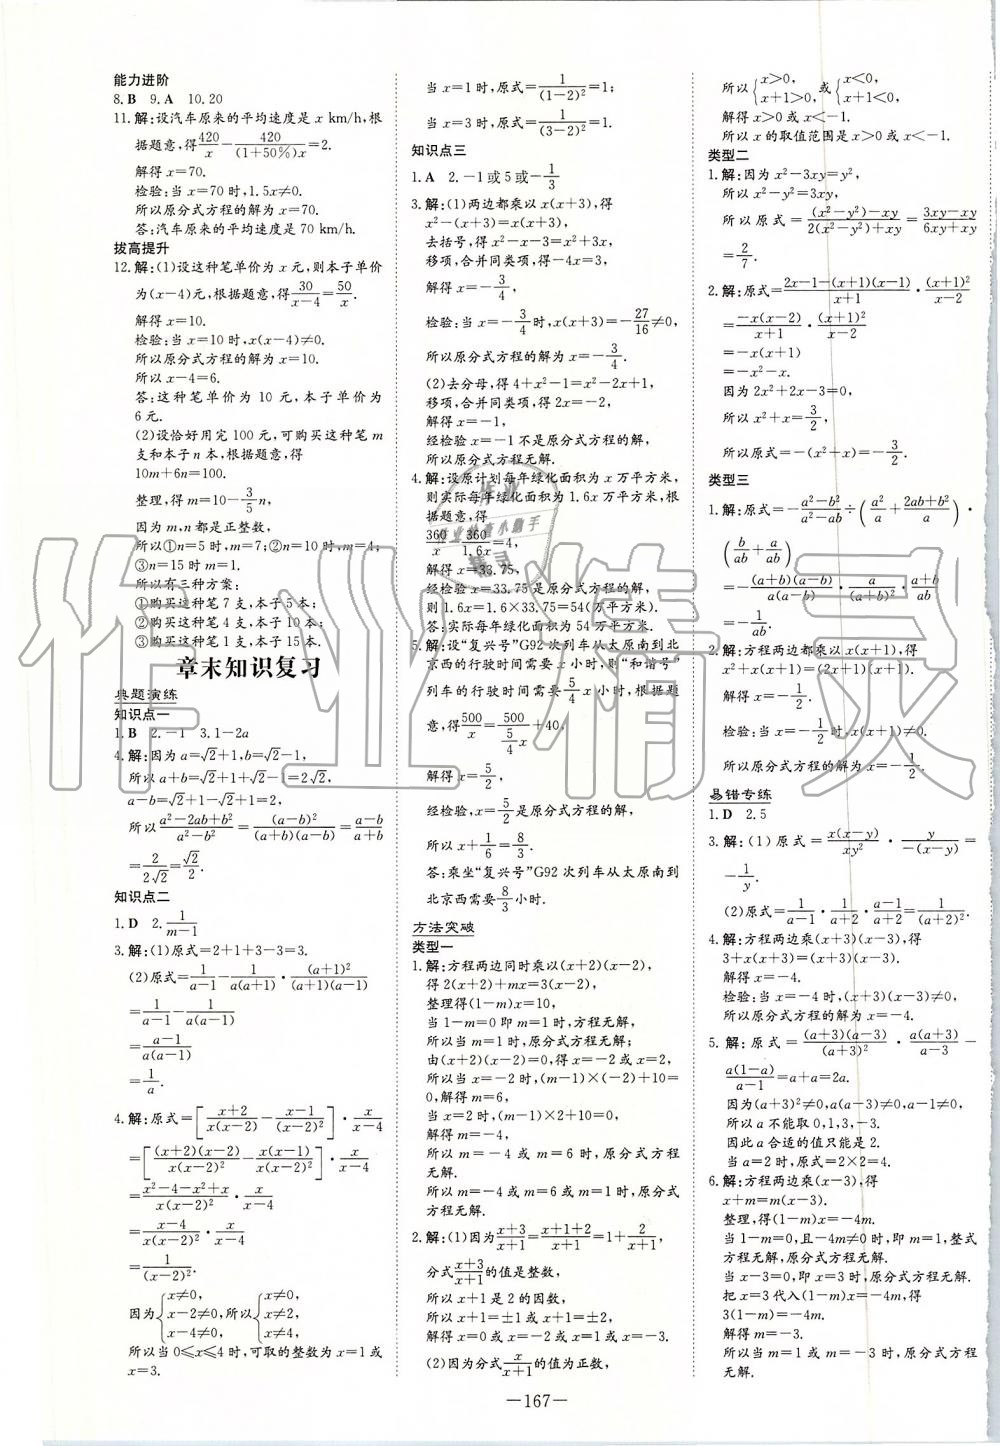 能力进阶
8.B 9.A 10.20
11.解:设汽车原来的平均速度是 x km/h,根
据题意,得420/x-420/((1+50%)x)=2.
解得 x=70.
检验:当 x=70 时,1.5x≠0.
所以原分式方程的解为 x=70.
答:汽车原来的平均速度是 70 km/h.
拔高提升
12.解:(1)设这种笔单价为 x 元,则本子单价
为(x-4)元,根据题意,得30/(x-4)=50/x.
解得 x=10.
检验:当 x=10 时,x(x-4)≠0.
所以原分式方程的解为 x=10.
所以 x-4=6.
答:这种笔单价为 10 元,本子单价为
6 元.
(2)设恰好用完 100 元,可购买这种笔 m
支和本子 n 本,根据题意,得
10m+6n=100.
整理,得 m=10-3/5 n,
因为 m,n 都是正整数,
所以①n=5 时,m=7;②n=10 时,m=4;
③n=15 时 m=1.
所以有三种方案:
①购买这种笔 7 支,本子 5 本;
②购买这种笔 4 支,本子 10 本;
③购买这种笔 1 支,本子 15 本.
章末知识复习
典题演练
知识点一
1.B 2.-1 3.1-2a
4.解:因为 a=√2+1,b=√2-1,
所以 a+b=√2+1+√2-1=2√2,
a-b=√2+1-√2+1=2,
所以(a²-2ab+b²)/(a²-b²)=(a-b)²/((a+b)(a-b))=(a-b)/(a+b)
=2/(2√2)=√2/2.
知识点二
1.D 2.1/(m-1)
3.解:(1)原式=2+1+3-3=3.
(2)原式=1/(a-1)-1/(a(a+1))·(a+1)²/((a+1)(a-1))
=1/(a-1)-1/(a(a-1))
=(a-1)/(a(a-1))
=1/a.
4.解:原式=[(x+2)/(x(x-2))-(x-1)/(x-2)²]·x/(x-4)
=[(x+2)(x-2)/(x(x-2)²)-x(x-1)/(x(x-2)²)]·x/(x-4)
=(x²-4-x²+x)/(x(x-2)²)·x/(x-4)
=(x-4)/(x(x-2)²)·x/(x-4)
=1/(x-2)².
因为{x≠0, x-2≠0, x-4≠0,所以{x≠0, x≠2, x≠4,
所以当 0≤x≤4 时,可取的整数为 x=1 或
x=3.
当 x=1 时,原式=1/(1-2)²=1;
当 x=3 时,原式=1/(3-2)²=1.
知识点三
1.A 2.-1或5或-1/3
3.解:(1)两边都乘以 x(x+3),得
x²-(x+3)=x(x+3),
去括号,得 x²-x-3=x²+3x,
移项,合并同类项,得-4x=3,
解得 x=-3/4,
检验:当 x=-3/4时,x(x+3)=-27/16≠0,
所以原分式方程的解为 x=-3/4.
(2)去分母,得 4+x²-1=x²-2x+1,
移项,合并同类项,得 2x=-2,
解得 x=-1,
经检验 x=-1 不是原分式方程的解,
所以原分式方程无解.
4.解:设原计划每年绿化面积为 x 万平方米,
则实际每年绿化面积为 1.6x 万平方米,根
据题意,得
360/x-360/1.6x=4,
解得 x=33.75,
经检验 x=33.75 是原分式方程的解,
则 1.6x=1.6×33.75=54(万平方米).
答:实际每年绿化面积为 54 万平方米.
5.解:设“复兴号”G92 次列车从太原南到北
京西的行驶时间需要 x 小时,则“和谐号”
列车的行驶时间需要5/4 x 小时,根据题
意,得500/x=500/(5/4 x)+40,
解得 x=5/2,
经检验,x=5/2是原分式方程的解,
所以 x+1/6=8/3.
答:乘坐“复兴号”G92 次列车从太原南到
北京西需要8/3小时.
方法突破
类型一
1.解:方程两边同时乘以(x+2)(x-2),
得 2(x+2)+mx=3(x-2),
整理得(1-m)x=10,
当 1-m=0 即 m=1 时,方程无解,
所以当 m=1 时,原分式方程无解;
由(x+2)(x-2)=0,得 x=-2 或 x=2,
所以当 x=-2 时,(m-1)×(-2)+10=
0,解得 m=6,
当 x=2 时,(m-1)×2+10=0,
解得 m=-4,
所以 m=-4 或 m=6 时,原分式方程
无解.
所以 m=-4 或 m=6 或 m=1 时,原分式
方程无解.
2.解:(1)因为(x+3)/(x+1)=(x+1+2)/(x+1)=1+2/(x+1),
分式(x+3)/(x+1)的值是整数,
所以 x+1 是 2 的因数,
所以 x+1=±1 或 x+1=±2,
解得 x=0 或 x=-2 或 x=1 或 x=-3.
(2)因为分式x/(x+1)的值为正数,
所以{x>0, x+1>0,或{x<0, x+1<0,
解得 x>0 或 x<-1.
所以 x 的取值范围是 x>0 或 x<-1.
类型二
1.解:因为 x²-3xy=y²,
所以 x²-y²=3xy,
所以原式=((x²-y²)-xy)/(2(x²-y²)+xy)=(3xy-xy)/(6xy+xy)
=2/7.
2.解:原式=(2x-1-(x+1)(x-1))/(x+1)·(x+1)²/(x-2)
=-x(x-2)/(x+1)·(x+1)²/(x-2)
=-x(x+1)
=-x²-x.
因为 2x²+2x-3=0,
所以 x²+x=3/2,
所以原式=-(x²+x)=-3/2.
类型三
1.解:原式=-(a²-b²)/(a²-ab)÷(a²/a+(2ab+b²)/a)·
(b/ab+a/ab)
=-(a+b)(a-b)/(a(a-b))·a/(a+b)²·(a+b)/ab
=-1/ab.
2.解:方程两边都乘以 x(x+1),得
x²+x(x+1)=(2x+1)(x+1),
解得 x=-1/2.
检验,当 x=-1/2时,x(x+1)≠0.
所以原分式方程的解为 x=-1/2.
易错专练
1.D 2.5
3.解:(1)原式=x(x-y)/xy²·y/-(x-y)=
-1/y.
(2)原式=1/(a-1)·1/(a+2)·(a-1)/(a+2)=1/(a+2)².
4.解:方程两边乘(x+3)(x-3),得
3+x(x+3)=(x+3)(x-3).
解得 x=-4.
检验:当 x=-4 时,(x+3)(x-3)≠0,
所以原分式方程的解为 x=-4.
5.解:原式=(a+3)(a-3)/(a+3)²·a(a+3)/(a-3)-
a(1-a)/(a-1)=a+a=2a.
因为(a+3)²≠0,a(a-3)≠0,a-1≠0,
所以 a 不能取 0,1,3,-3.
因此 a 合适的值只能是 2.
当 a=2 时,原式=2×2=4.
6.解:方程两边乘(x-3),得
x+m=m(x-3).
整理,得(1-m)x=-4m.
当 1-m=0,且-4m≠0 时,即 m=1,整式
方程无解,原分式方程无解.
当 x-3=0,即 x=3 时,原分式方程无解.
把 x=3 代入(1-m)x=-4m,得
3(1-m)=-4m.
解得 m=-3.
所以当 m=1 或 m=-3 时,原分式方程
无解.
—167—
作业精灵